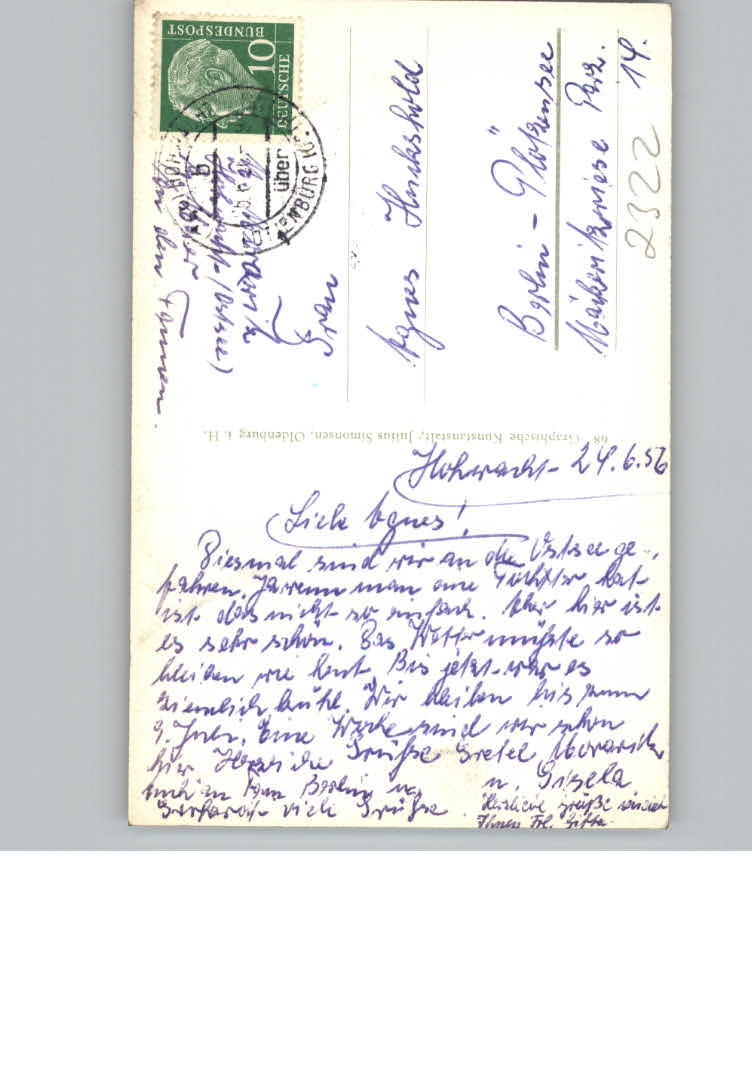 Hohwacht - 24.6.56
Liebe Agnes!
Diesmal sind wir an die Ostsee ge-
fahren. Ja wenn man eine Tochter hat
ist das nicht so einfach. Aber hier ist
es sehr schön. Das Wetter müßte so
bleiben wie heut. Bis jetzt war es
ziemlich kühl. Wir bleiben bis zum
9. Juli. Eine Woche sind wir schon
hier Herzliche Grüße Gretel
u. Gisela
auch an Berlin u.
viele Grüße.
Herzliche Grüße
Ihnen Frl. Gitta
68 Graphische Kunstanstalt, Julius Simonsen, Oldenburg i. H.
Frau
Agnes
Berlin - Plötzensee
14.
2322
Hohwacht (Ostsee)
den Tannen.
DEUTSCHE
BUNDESPOST
10
über
b